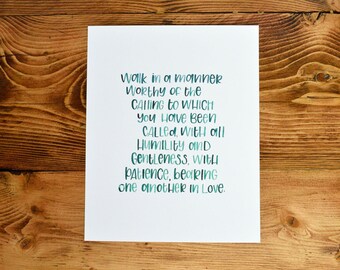 Walk in a manner
worthy of the
calling to which
you have been
called, with all
humility and
gentleness, with
patience, bearing
one another in love.